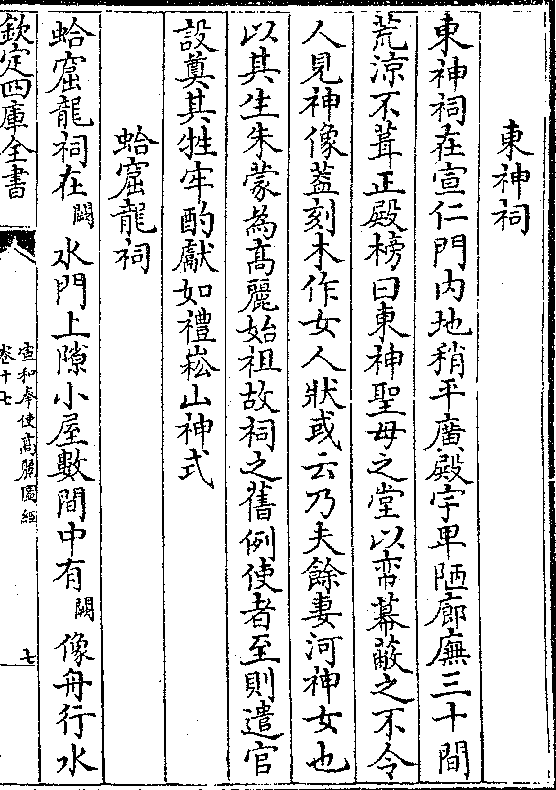 東神祠
東神祠在宣仁門内地稍平廣殿宇卑陋廊廡三十間
荒涼不葺正殿榜曰東神聖母之堂以帟幕蔽之不令
人見神像葢刻木作女人狀或云乃夫餘妻河神女也
以其生朱蒙為髙麗始祖故祠之舊例使者至則遣官
設奠其牲牢酌獻如禮崧山神式
蛤窟龍祠
蛤窟龍祠在闕水門上隙小屋數間中有闕像舟行水
欽定四庫全書
宣和奉使髙麗圖經
卷十七
七